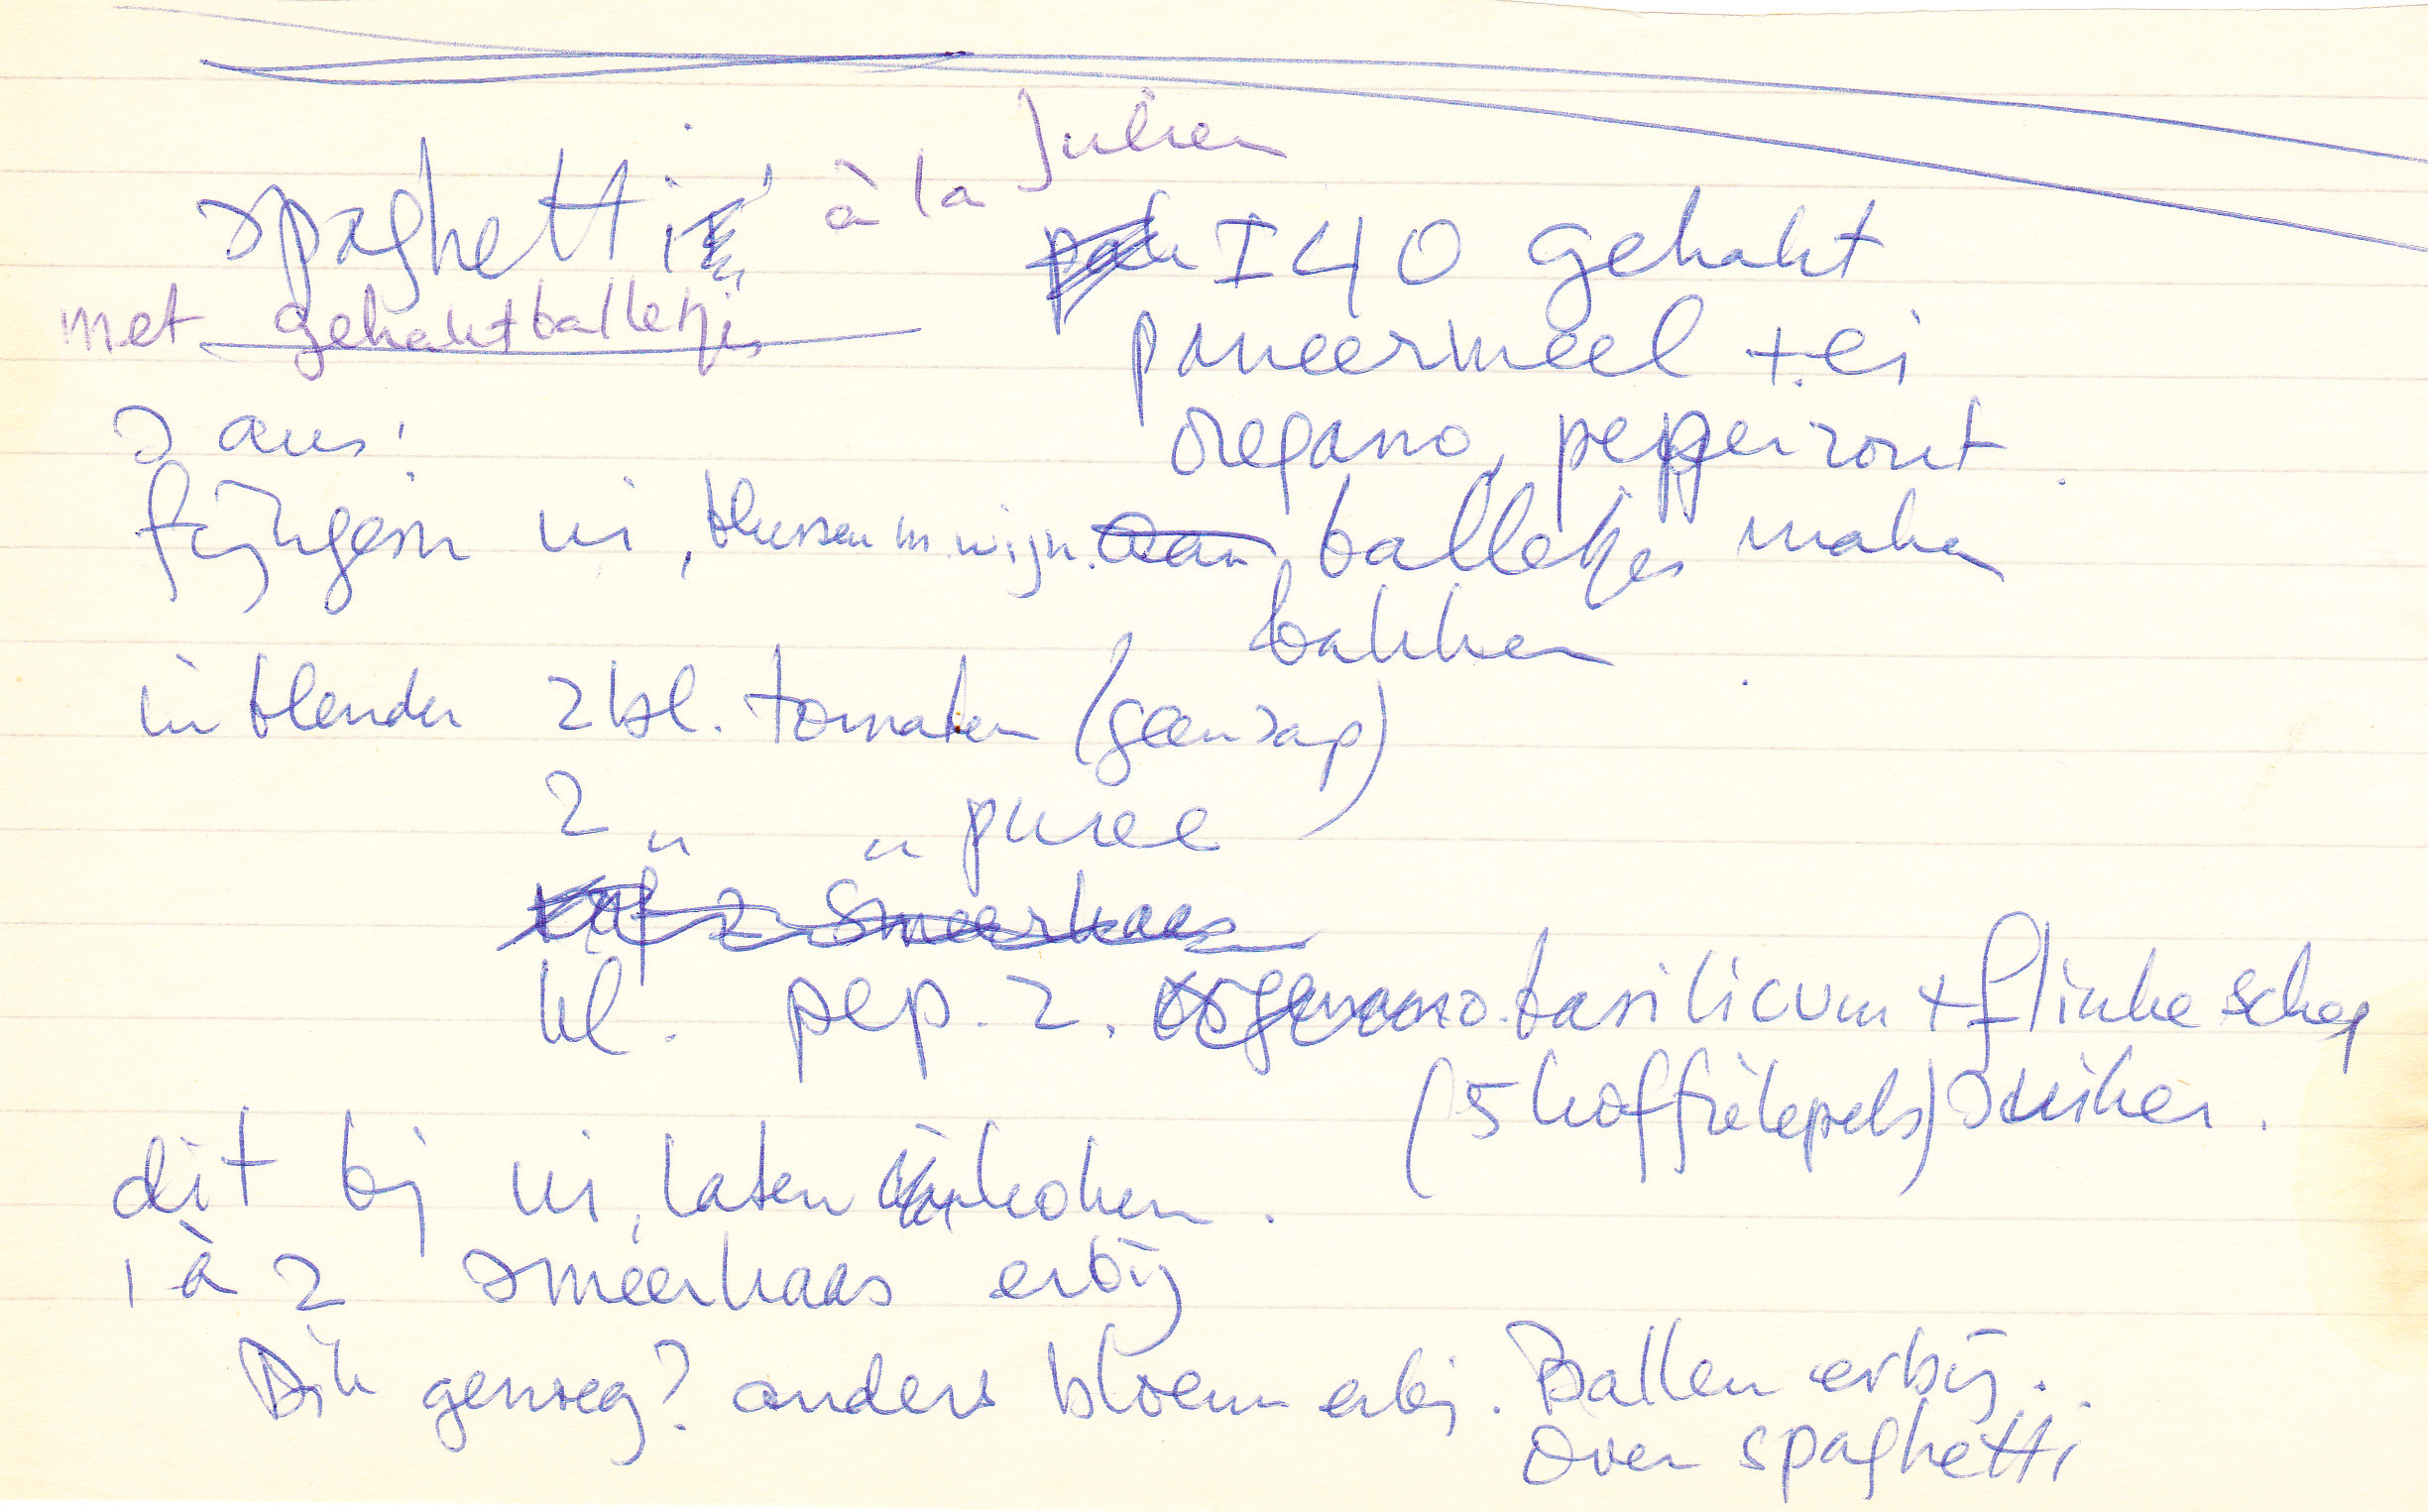 spaghetti à la Julien
met gehaktballetjes
I 40 gehakt
paneermeel + ei
oregano, peper zout.
balletjes maken
bakken.
saus:
fijngesn ui, blussen m. wijn.
in blender 2 bl. tomaten (geen sap)
2 " " puree
kl. pep. z. basilicum + flinke schep
(5 koffielepels) suiker.
dit bij ui, laten inkoken.
1 à 2 smeerkaas erbij
Dik genoeg? anders bloem erbij. Ballen erbij.
over spaghetti